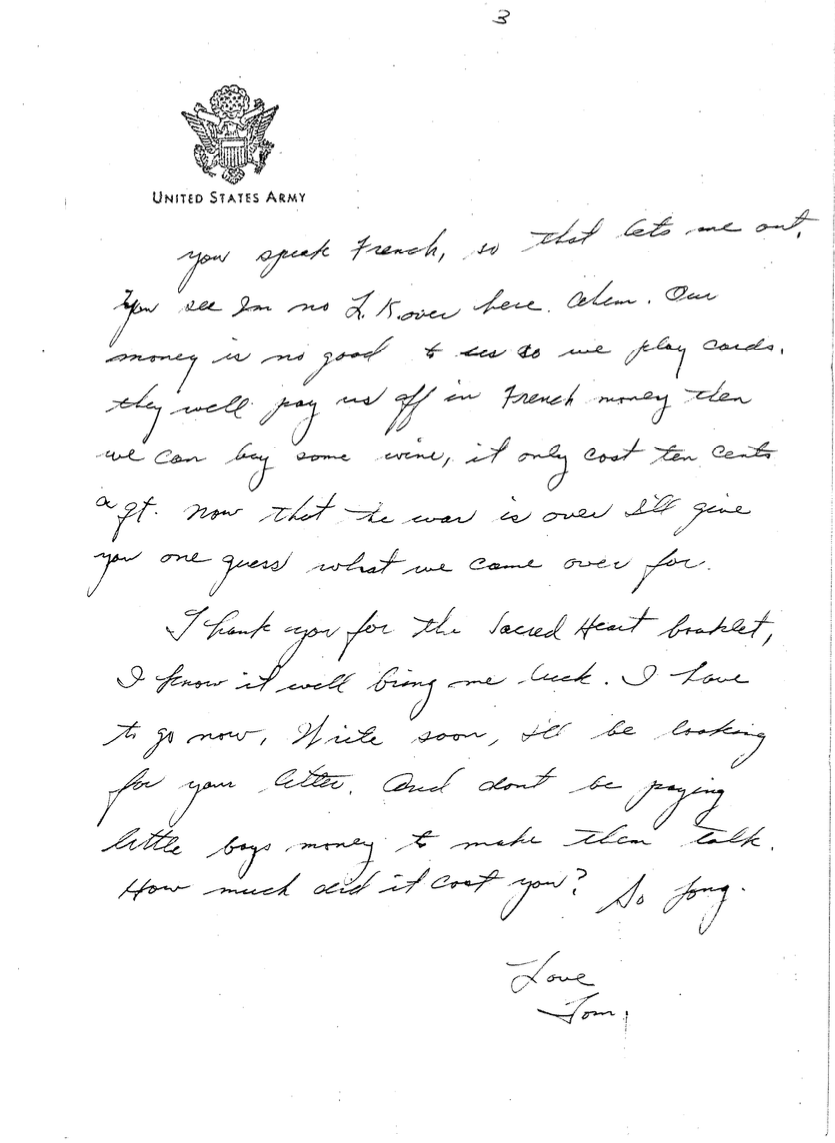 3
UNITED STATES ARMY
you speak French, so that lets me out.
You see Im no L.K. over here. Ahem. Our
money is no good to us so we play cards.
they will pay us off in French money then
we can buy some wine, it only cost ten cents
a qt. Now that the war is over I'll give
you one guess what we came over for.
Thank you for the Sacred Heart booklet,
I know it will bring me luck. I have
to go now, Write soon, I'll be looking
for your letter. And dont be paying
little boys money to make them talk.
How much did it cost you? So long.
Love
Tom.